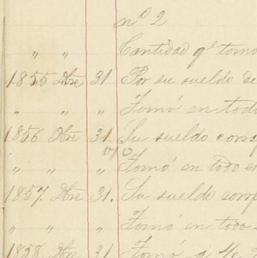 nº 2
" " Cantidad qe tomó
1855 Dbre 31. Por su sueldo de
" " Tomó en todo
1856 Dbre 31. Su sueldo
" " Tomó en todo
1857 Dbre 31. Su sueldo
" " Tomó en todo
1858 " 31. Tomó